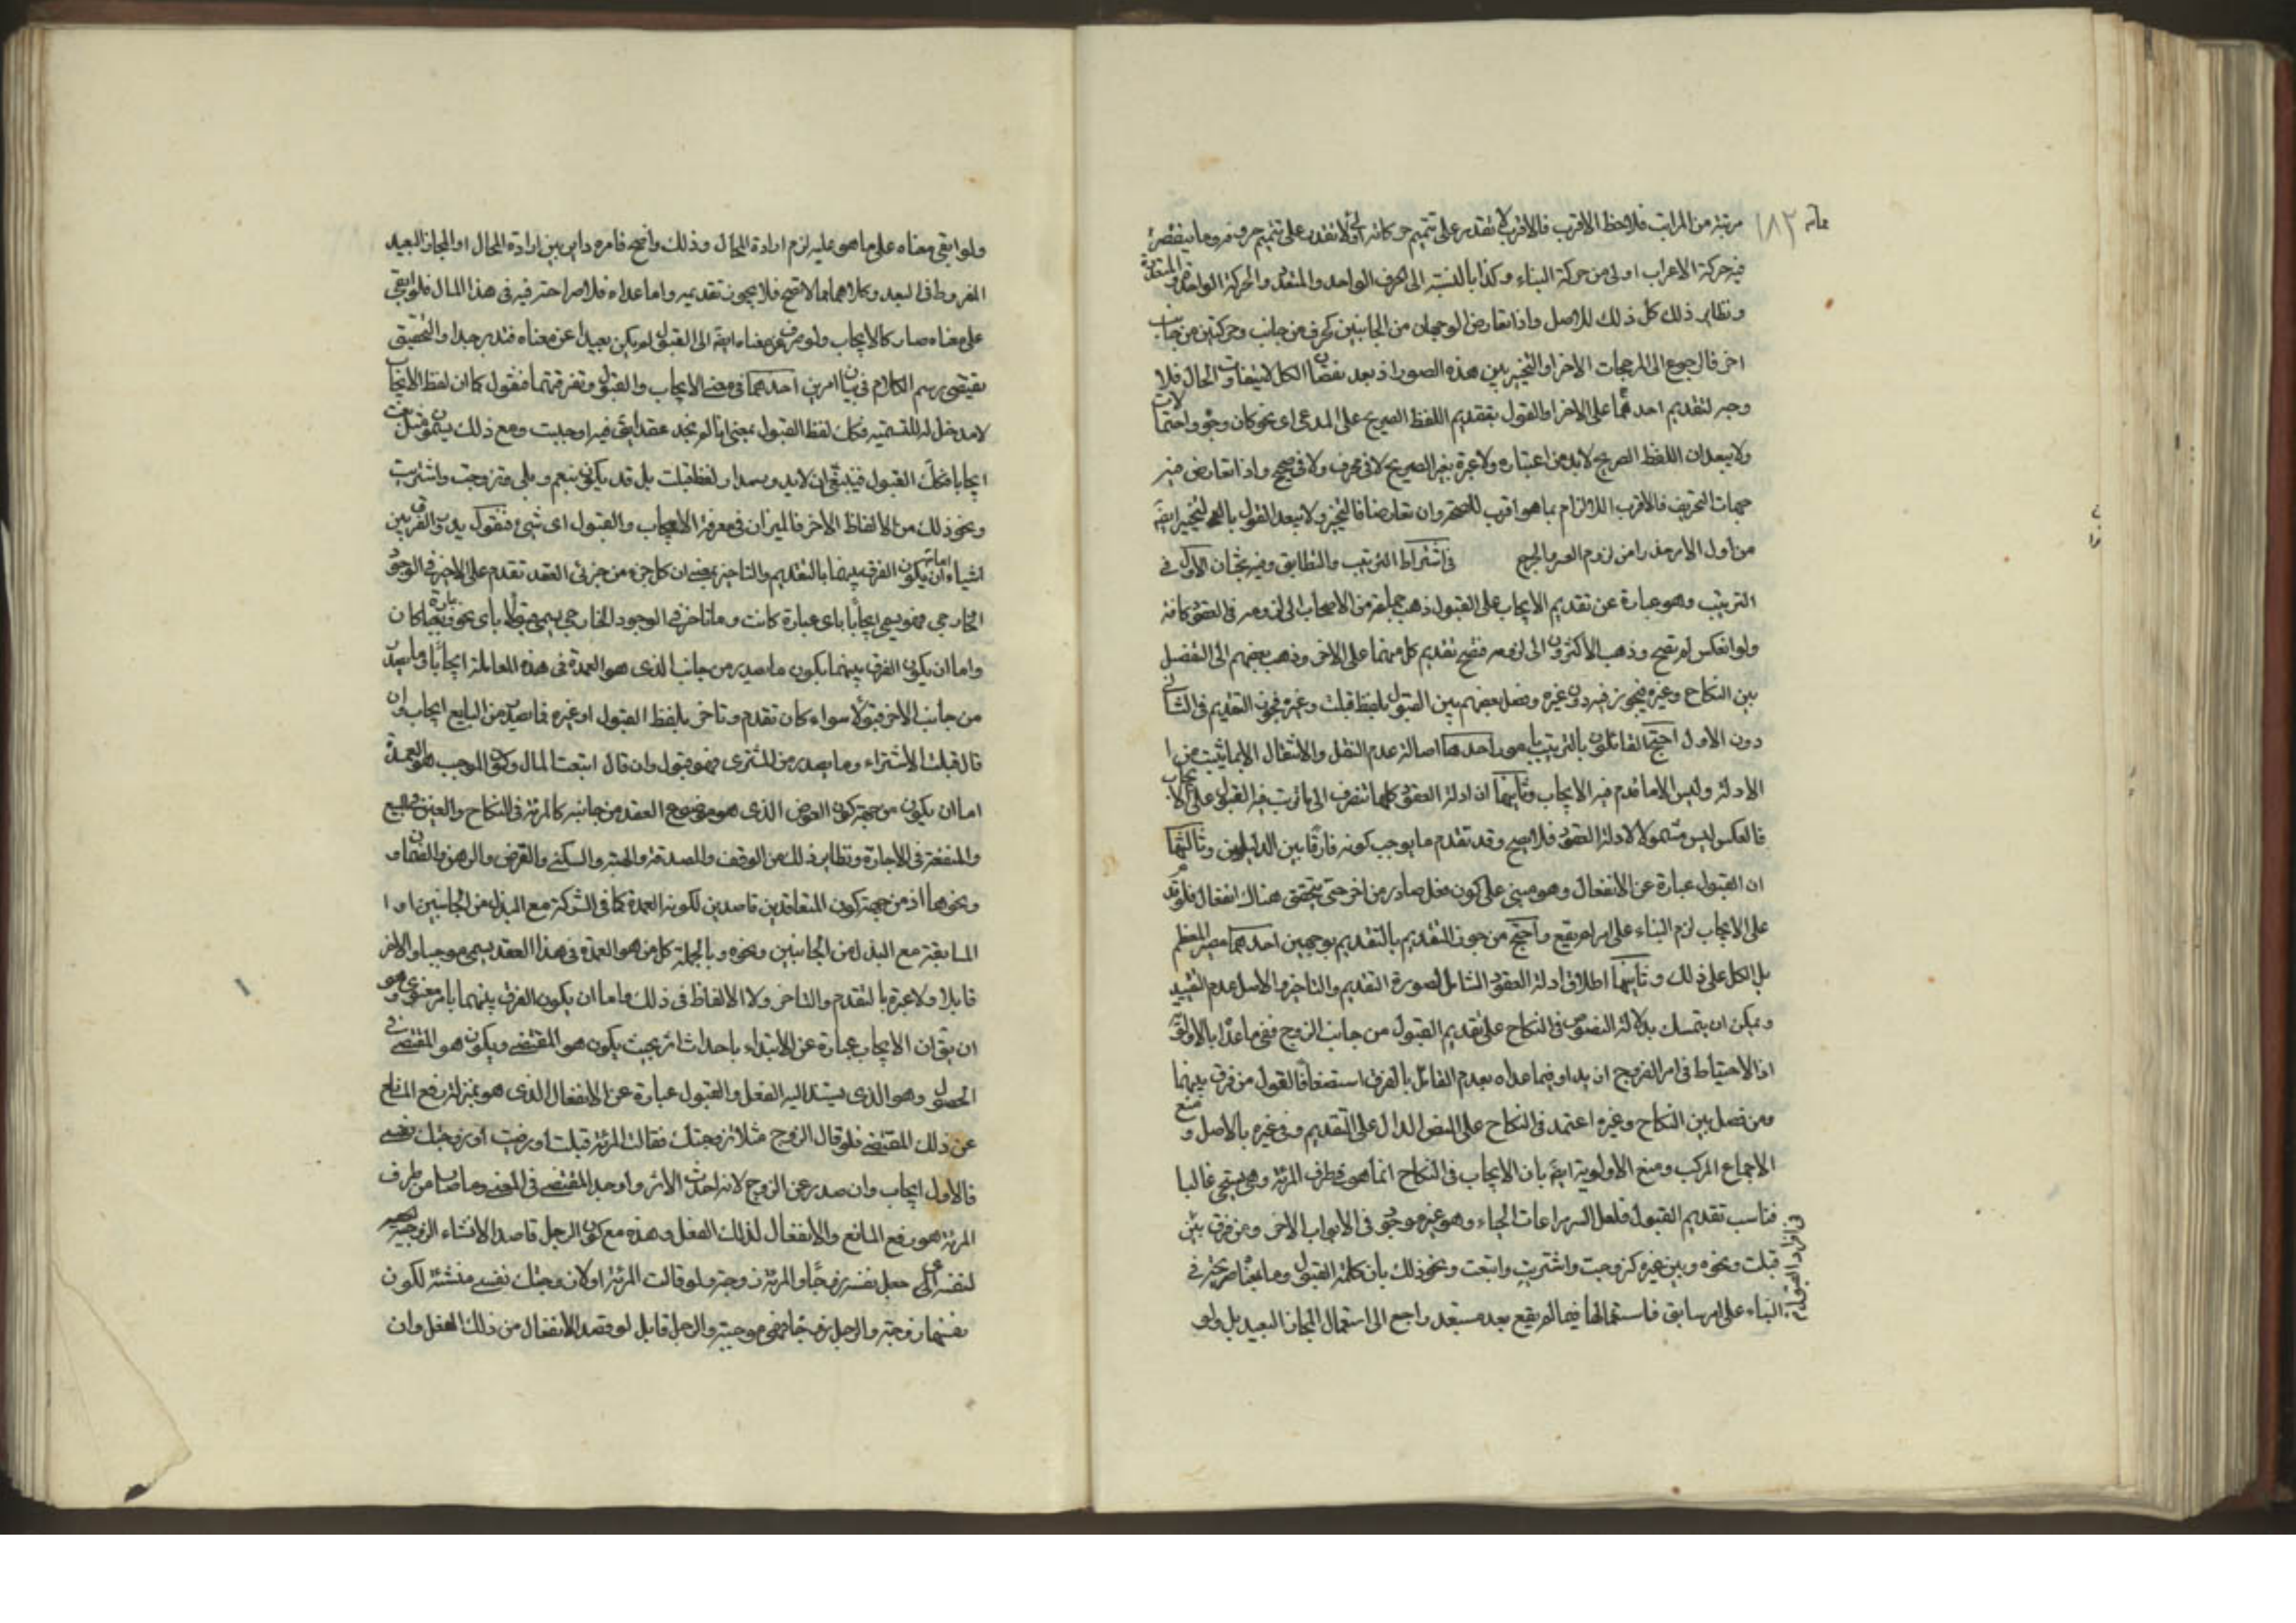 مرتبة من المراتب فلاحظ الاقرب فالاقرب لا تقدر على تتميم حركاته اولا تقدر على تتميم حرف
فيه حركة الاعراب اولى من حركة البناء وكذا بالنسبة الى الحرف الواحد والمتعدد والحركة الواحدة والمتعددة
ونظاير ذلك كل ذلك للاصل واذا تعارض الوجهان من الجانبين كحرف من جانب وحركتين من جانب
اخر فالرجوع الى المرجحات الاخر او التخيير بين هذه الصور اذ بعد نقصان الكل لا يتفاوت الحال فلا
وجه لتقديم احدهما على الاخر او القول بتقديم اللفظ الصريح على المدعى اى نحو كان وجوه واحتمالات
ولا يبعد ان اللفظ الصريح لابد من اعتباره ولا عبرة بغير الصريح لا فى محرف ولا فى صحيح واذا تعارض فيه
جهات التحريف فالاقرب الالتزام بما هو اقرب للصحة وان تعارضا فالتخيير ولا يبعد القول بالتخيير ايضا
من اول الامر حذرا من لزوم العسر والحرج فى اشتراط الترتيب والتطابق وفيه بحثان الاول فى
الترتيب وهو عبارة عن تقديم الايجاب على القبول ذهب جماعة من الاصحاب الى لزومه فى العقود كافة
ولو انعكس لم تصح وذهب الاكثرون الى لزومه فصح تقديم كل منهما على الاخر وذهب بعضهم الى التفصيل
بين النكاح وغيره فيجوز فيه دون غيره وفصل بعضهم بين القبول بلفظ قبلت وغيره فجوز التقديم فى الثانى
دون الاول احتج القائلون بالترتيب بامور احدها اصالة عدم النقل والانتقال الا بما يثبت من ا
الادلة وليس الا ما قدم فيه الايجاب وثانيها ان ادلة العقود كلها تنصرف الى ما ترتب فيه القبول على الايجاب
فالعكس ليس مشمولا لادلة العقود فلا يصح وقد تقدم ما يوجب كونه فارقا بين الدليلين وثالثها
ان القبول عبارة عن الانفعال وهو مبنى على كون فعل صادر من اخر حتى يتحقق هناك انفعال فلو قدم
على الايجاب لزم البناء على امر لم يقع واحتج من جوز التقديم بالتقديم بوجهين احدهما مصير المعظم
بل الكل على ذلك وثانيهما اطلاق ادلة العقود الشامل لصورة التقديم والتاخير والاصل عدم التقييد
ويمكن ان يتمسك بدلالة النصوص فى النكاح على تقديم القبول من جانب الزوج ففى ما عداه بالاولوية
اذ الاحتياط فى امر الفروج ازيد او فيما عداه بعدم القائل بالفرق استضعافا لقول من فرق بينهما
ومن فصل بين النكاح وغيره اعتمد فى النكاح على النص الدال على التقديم وفى غيره بالاصل ومنع
الاجماع المركب ومنع الاولوية ايضا بان الايجاب فى النكاح انما هو فى طرف المرئة وهى يستحيى غالبا
فناسب تقديم القبول فلعل السر مراعات الحياء وهو غير موجود فى الابواب الاخر ومن فرق بين
قبلت ونحوه وبين غيره كتزوجت واشتريت وابتعت ونحو ذلك بان كلمة القبول وما بمعناها صريحة فى
البناء على امر سابق فاستعمالها فيما لم يقع بعد مستبعد راجع الى استعمال المجاز البعيد بل ولو
ولو ابقى معناه على ما هو عليه لزم ارادة المحال وذلك واضح فامره داير بين ارادة المحال او المجاز البعيد
المفروط فى البعد وكلاهما مما لا تصح فلا يجوز تقديمه واما ما عداه فلا صراحة فيه فى هذا المال فلو ابقى
على معناه صار كالايجاب ولو صرف عن معناه ايضا الى القبول لم يكن بعيدا عن معناه فتدبر جدا والتحقيق
يقتضى رسم الكلام فى بيان امرين احدهما فى معنى الايجاب والقبول وتفرقتهما فنقول كما ان لفظ الايجاب
لا مدخل له للتسمية فكك لفظ القبول بمعنى انا لم نجد عقدا يقع فيه اوجبت ومع ذلك يسمون مثل بعت
ايجابا فكك القبول فينبغى ان لا يدور مدار لفظ قبلت بل قد يكون بنعم وبلى وتزوجت واشتريت
ونحو ذلك من الالفاظ الاخر فالميزان فى معرفة الايجاب والقبول اى شىء فنقول يدور الفرق بين
اشياء اما ان يكون الفرق بينهما بالتقديم والتاخير بمعنى ان كل جزء من جزئى العقد تقدم على الاخر فى الوجود
الخارجى فهو يسمى ايجابا باى عبارة كانت وما تاخر فى الوجود الخارجى يسمى قبولا باى نحو وعبارة كان
واما ان يكون الفرق بينهما بكون ما صدر من جانب الذى هو العمدة فى هذه المعاملة ايجابا وما صدر
من جانب الاخر قبولا سواء كان تقدم وتاخر بلفظ القبول او غيره فما صدر من البايع ايجاب وان
قال قبلت الاشتراء وما يصدر من المشترى فهو قبول وان قال ابتعت المال وكون الموجب هو العمدة
اما ان يكون من جهة كون العوض الذى هو موضوع العقد من جانبه كالمرئة فى النكاح والعين فى البيع
والمنفعة فى الاجارة ونظاير ذلك من الوقف والصدقة والهبة والسكنى والقرض والرهن والضمان و
ونحوهما او من جهة كون المتعاقدين قاصدين لكونه العمدة كما فى الشركة مع البذل من الجانبين او ا
المسابقة مع البذل من الجانبين ونحوه وبالجملة كل من هو العمدة فى هذا العقد يسمى موجبا والاخر
قابلا ولا عبرة بالتقدم والتاخر ولا الالفاظ فى ذلك واما ان يكون الفرق بينهما بامر معنوى وهو
ان يق ان الايجاب عبارة عن الابتداء باحداث اثر بحيث يكون هو المقتضى ويكون هو المقتضى فى
الحصول وهو الذى يستند اليه الفعل والقبول عبارة عن الانفعال الذى هو بمنزلة رفع المانع
عن ذلك المقتضى فلو قال الزوج مثلا تزوجتك فقالت المرئة قبلت او رضيت او زوجتك نفسى
فالاول ايجاب وان صدر عن الزوج لانه احدث الاثر واوجد المقتضى فى المعنى وما صدر من طرف
المرئة هو رفع المانع والانفعال لذلك الفعل وهذه مع كون الرجل قاصدا لانشاء الزوجية
لنفسه اى جعل نفسه زوجا والمرئة زوجة ولو قالت المرئة اولا زوجتك نفسى منشئة لكون
نفسها زوجة والرجل زوجا فهى موجبة والرجل قابل لو قصد الانفعال من ذلك الفعل وان